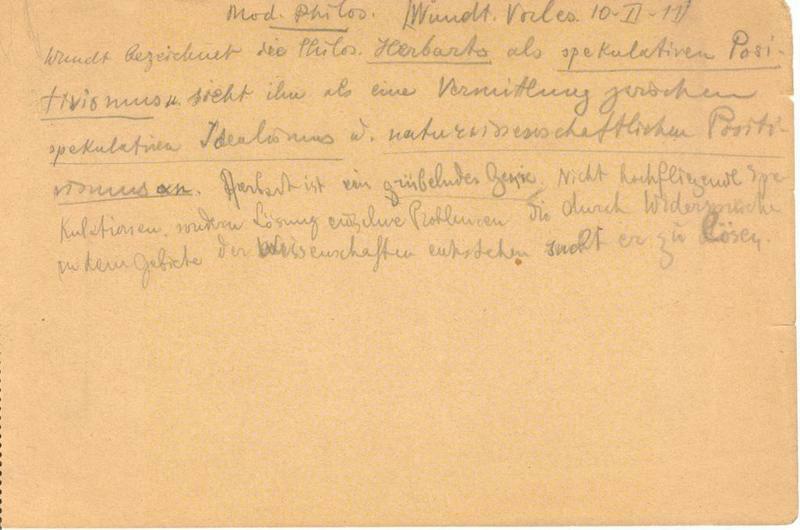 Mod. Philos. [Wundt. Vorles. 10-II-11]
Wundt bezeichnet die Philos. Herbarts als spekulativen Posi-
tivismus u. sieht ihn als eine Vermittlung zwischen
spekulativen Idealismus u. naturwissenschaftlichen Positi-
vismus an. Herbart ist ein grübelndes Genie. Nicht hochfliegende Spe-
kulationen, sondern Lösung einzelne Problemen die durch Widersprüche
in dem Gebiete der Wissenschaften entstehen sucht er zu lösen.